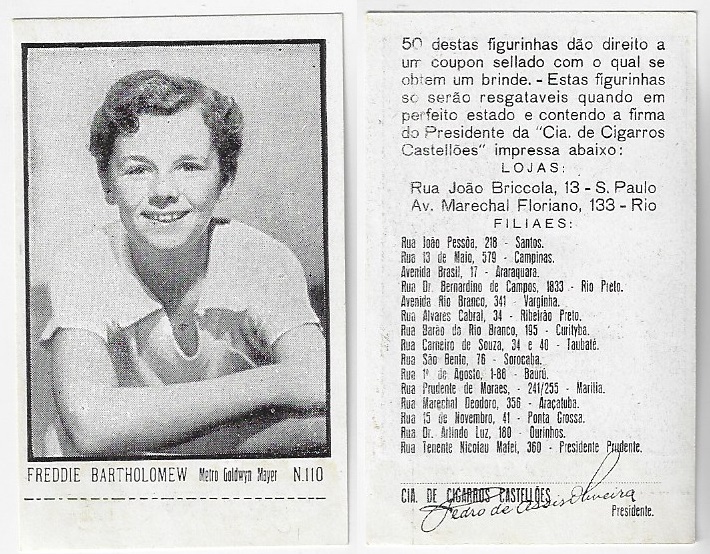 FREDDIE BARTHOLOMEW Metro Goldwyn Mayer N.110
50 destas figurinhas dão direito a
um coupon sellado com o qual se
obtem um brinde. - Estas figurinhas
so serão resgataveis quando em
perfeito estado e contendo a firma
do Presidente da "Cia. de Cigarros
Castellões" impressa abaixo:
LOJAS:
Rua João Briccola, 13 - S. Paulo
Av. Marechal Floriano, 133 - Rio
FILIAES:
Rua João Pessôa, 218 - Santos.
Rua 13 de Maio, 579 - Campinas.
Avenida Brasil, 17 - Araraquara.
Rua Dr. Bernardino de Campos, 1833 - Rio Preto.
Avenida Rio Branco, 341 - Varginha.
Rua Alvares Cabral, 34 - Ribeirão Preto.
Rua Barão do Rio Branco, 195 - Curityba.
Rua Carneiro de Souza, 34 e 40 - Taubaté.
Rua São Bento, 76 - Sorocaba.
Rua 1º de Agosto, 1-86 - Baurú.
Rua Prudente de Moraes, - 241/255 - Marilia.
Rua Marechal Deodoro, 356 - Araçatuba.
Rua 15 de Novembro, 41 - Ponta Grossa.
Rua Dr. Arlindo Luz, 180 - Ourinhos.
Rua Tenente Nicolau Mafei, 360 - Presidente Prudente.
CIA. DE CIGARROS CASTELLÕES
Pedro de Assis Oliveira
Presidente.